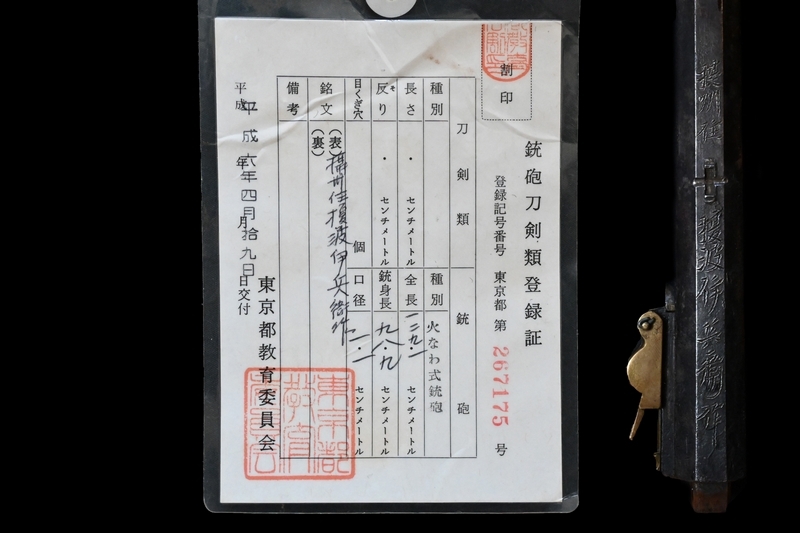 割印
銃砲刀剣類登録証
登録記号番号 東京都 第 267175 号
刀剣類 銃砲
種別 種別 火なわ式銃砲
長さ ・ センチメートル 全長 一二九・一 センチメートル
反り ・ センチメートル 銃身長 九八・九 センチメートル
目くぎ穴 個 口径 センチメートル
銘文 (表) 摂州住榎波伊兵衛作
(裏)
備考
東京都教育委員会
平成六年四月拾九日交付
東京都教育委員会
摂州住
榎波伊兵衛作